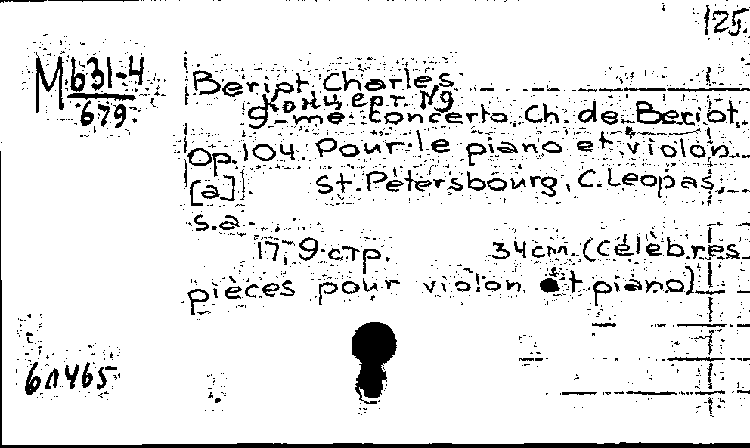 125.
М 631-4
679.
Beriot, Charles
Концерт №9
9-me concerto, Ch. de Beriot.
Op. 104. Pour le piano et violon.
[a] St. Pétersbourg, C. Leopas,
s.a.
17, 9 стр. 34 см. (Célèbres
pièces pour violon et piano)
6л465